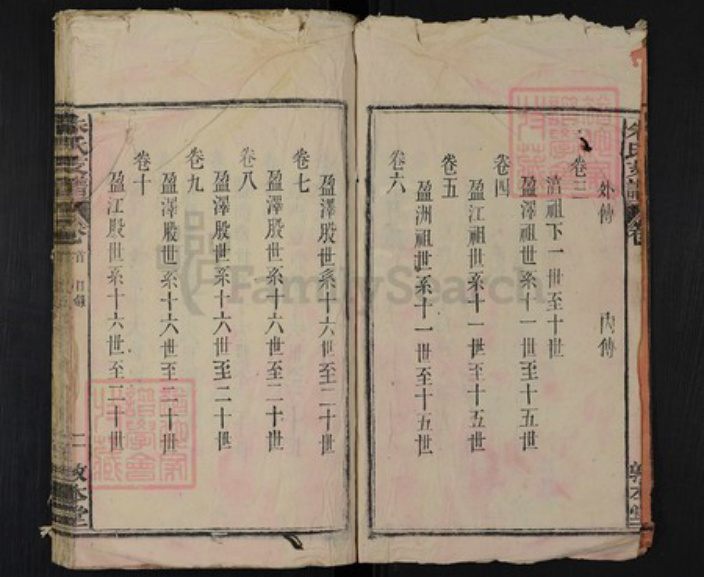 朱氏支譜
卷
敦本堂
外傳 內傳
卷三
清祖下一世至十世
盈澤祖世系十一世至十五世
卷四
盈江祖世系十一世至十五世
卷五
盈洲祖世系十一世至十五世
卷六
盈澤股世系十六世至二十世
卷七
盈澤股世系十六世至二十世
卷八
盈澤股世系十六世至二十世
卷九
盈澤股世系十六世至二十世
卷十
盈江股世系十六世至二十世
朱氏支譜
卷首 目錄
二 敦本堂
FamilySearch